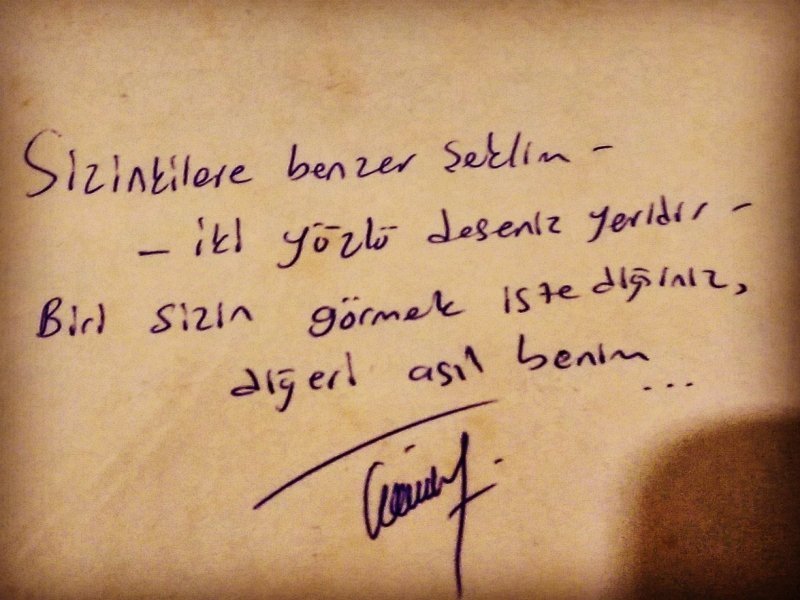 Sizinkilere benzer şeklim -
- iki yüzlü deseniz yeridir -
Biri sizin görmek istediğiniz,
diğeri asıl benim
...